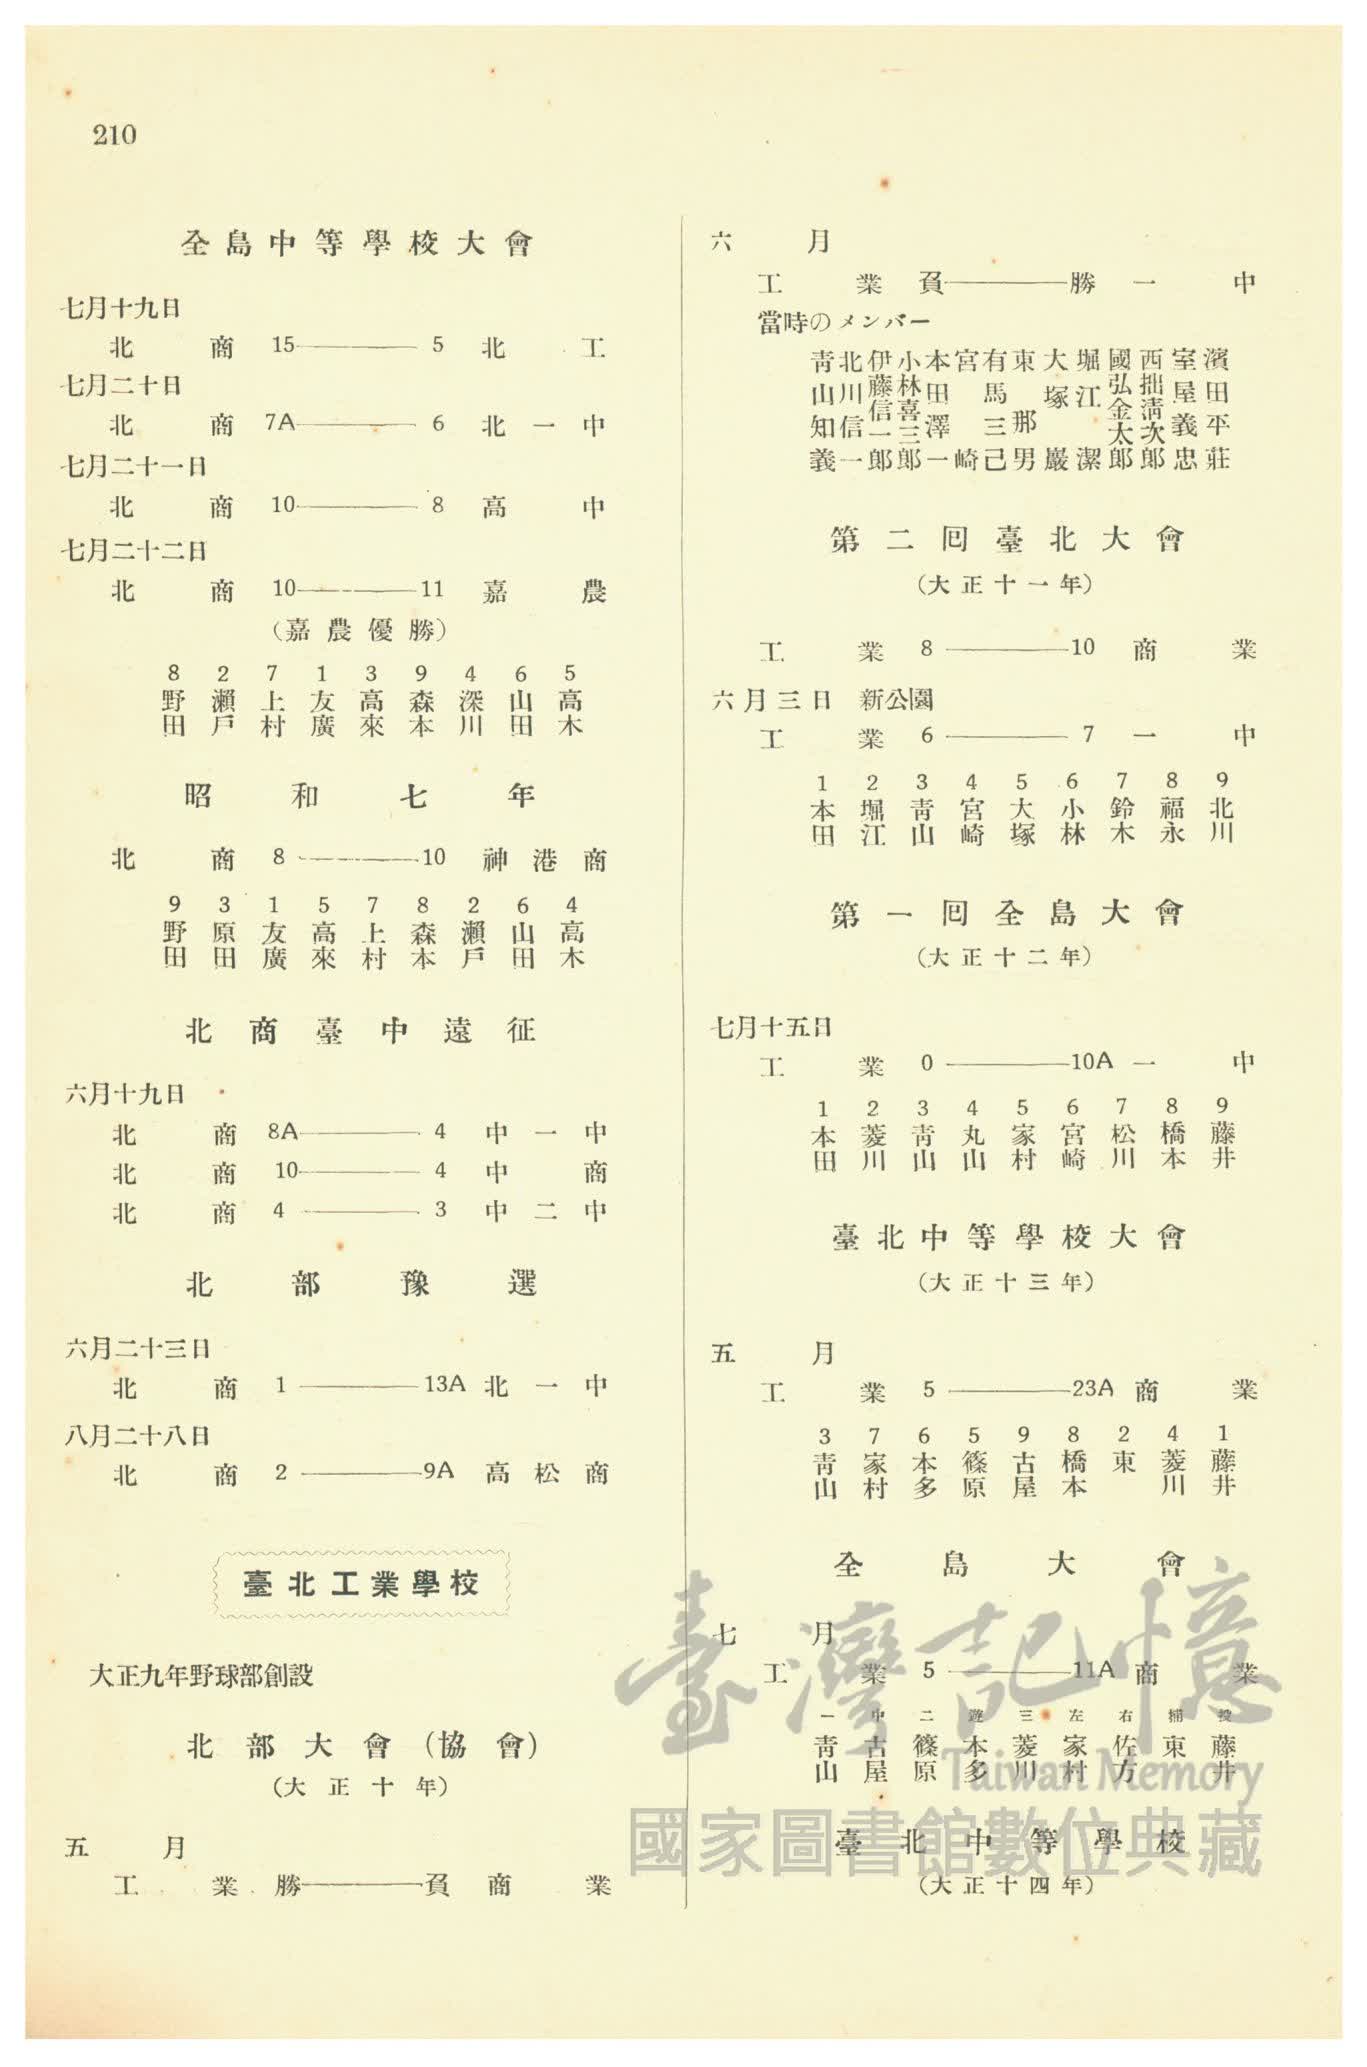 210
全島中等學校大會
七月十九日
北商 15 ——— 5 北工
七月二十日
北商 7A ——— 6 北一中
七月二十一日
北商 10 ——— 8 高中
七月二十二日
北商 10 ——— 11 嘉農
（嘉農優勝）
8 2 7 1 3 9 4 6 5
野田 瀨戶 上村 友廣 高來 森本 深川 山田 高木
昭和七年
北商 8 ——— 10 神港商
9 3 1 5 7 8 2 6 4
野田 原田 友廣 高來 上村 森本 瀨戶 山田 高木
北商臺中遠征
六月十九日
北商 8A ——— 4 中一中
北商 10 ——— 4 中商
北商 4 ——— 3 中二中
北部豫選
六月二十三日
北商 1 ——— 13A 北一中
八月二十八日
北商 2 ——— 9A 高松商
臺北工業學校
大正九年野球部創設
北部大會（協會）
（大正十年）
五月
工業 勝 ——— 負 商業
六月
工業 負 ——— 勝 一中
當時のメンバー
青山知義 北川信一 伊藤信一郎 小林喜三郎 本田澤一 宮崎 有馬三己 東那男 大塚巖 堀江潔 國弘金太郎 西拙淸次郎 室屋義忠 濱田平莊
第二囘臺北大會
（大正十一年）
工業 8 ——— 10 商業
六月三日 新公園
工業 6 ——— 7 一中
1 2 3 4 5 6 7 8 9
本田 堀江 靑山 宮崎 大塚 小林 鈴木 福永 北川
第一囘全島大會
（大正十二年）
七月十五日
工業 0 ——— 10A 一中
1 2 3 4 5 6 7 8 9
本田 菱川 靑山 丸山 家村 宮崎 松川 橋本 藤井
臺北中等學校大會
（大正十三年）
五月
工業 5 ——— 23A 商業
3 7 6 5 9 8 2 4 1
靑山 家村 本多 篠原 古屋 橋本 東 菱川 藤井
全島大會
七月
工業 5 ——— 11A 商業
一 中 二 遊 三 左 右 捕 投
靑山 古屋 篠原 本多 菱川 家村 佐方 東 藤井
臺北中等學校
（大正十四年）
臺灣記憶
Taiwan Memory
國家圖書館數位典藏